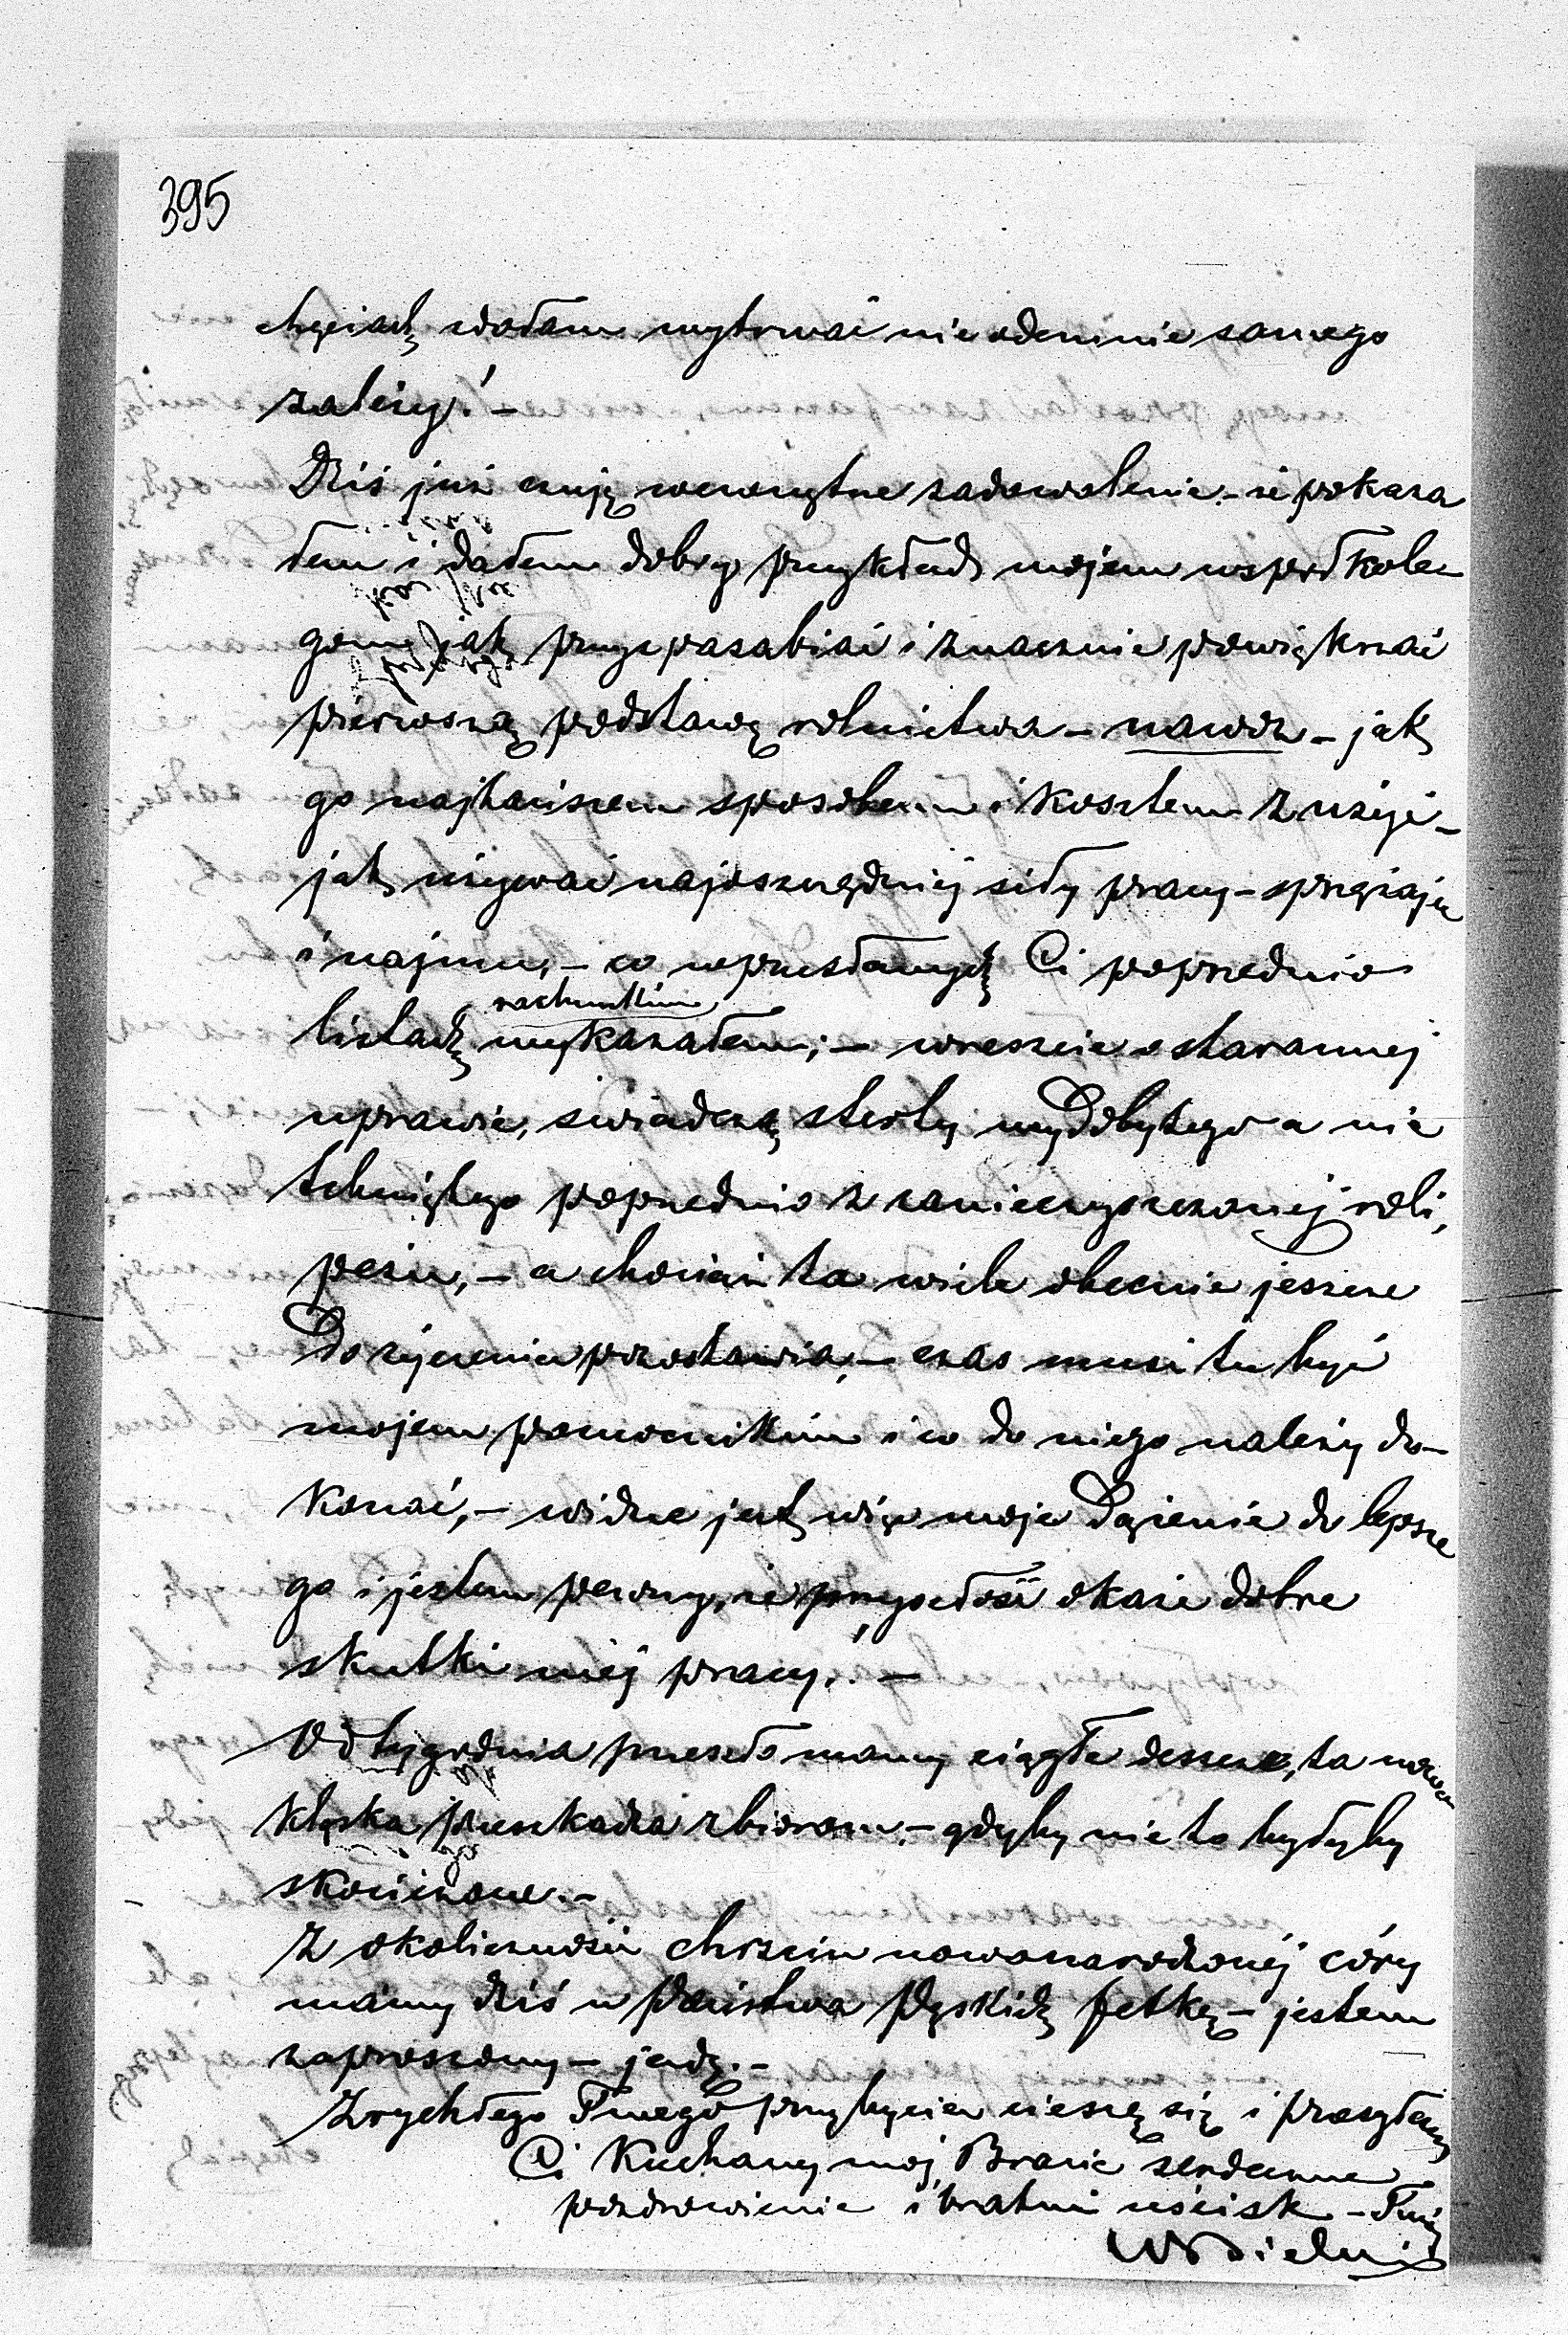 395
chęciach wołam wytrwać nie odemnie samego
zależy! –
Dziś już czuję wewnętrzne zadowolenie – że pokaza
łem i dałem dobry przykład mojem współkole-
gom jak przysposabiać i znacznie powiększać
pierwszą podstawę rolnictwa – nawóz – jak
go najtańszem sposobem i kosztem zużyć –
jak używać najoszczędniej siły pracy – sprzężaju
i najmu, – co w przesłanych Ci poprzednio
rachunkiem
listach wykazałem; – wreszcie o starannej
uprawie, świadczą sterty wydobytego a nie
tchniętego poprzednio z zanieczyszczonej roli,
perzu, – a chociaż ta wiele obecnie jeszcze
do życzenia pozostawia, – czas musi tu być
mojem pomocnikiem i co do niego należy do-
konać, – widne jest więc moje dążenie do lepsze
go i jestem pewny, że przyszłość okaże dobre
skutki mej pracy! –
Od tygodnia przeszło mamy ciągłe deszcze, ta nowa
klęska przeszkadza zbiorom – gdyby nie to byłyby
skończone. –
Z okoliczności chrzcin nowonarodzonej córy
mamy dziś u Państwa fetkę – jestem
zaproszony – jadę. –
Z rychłego Twego przybycia cieszę się i przesyłam
Ci Kochany mój Bracie serdeczne
pozdrowienie i bratni uścisk – Twój